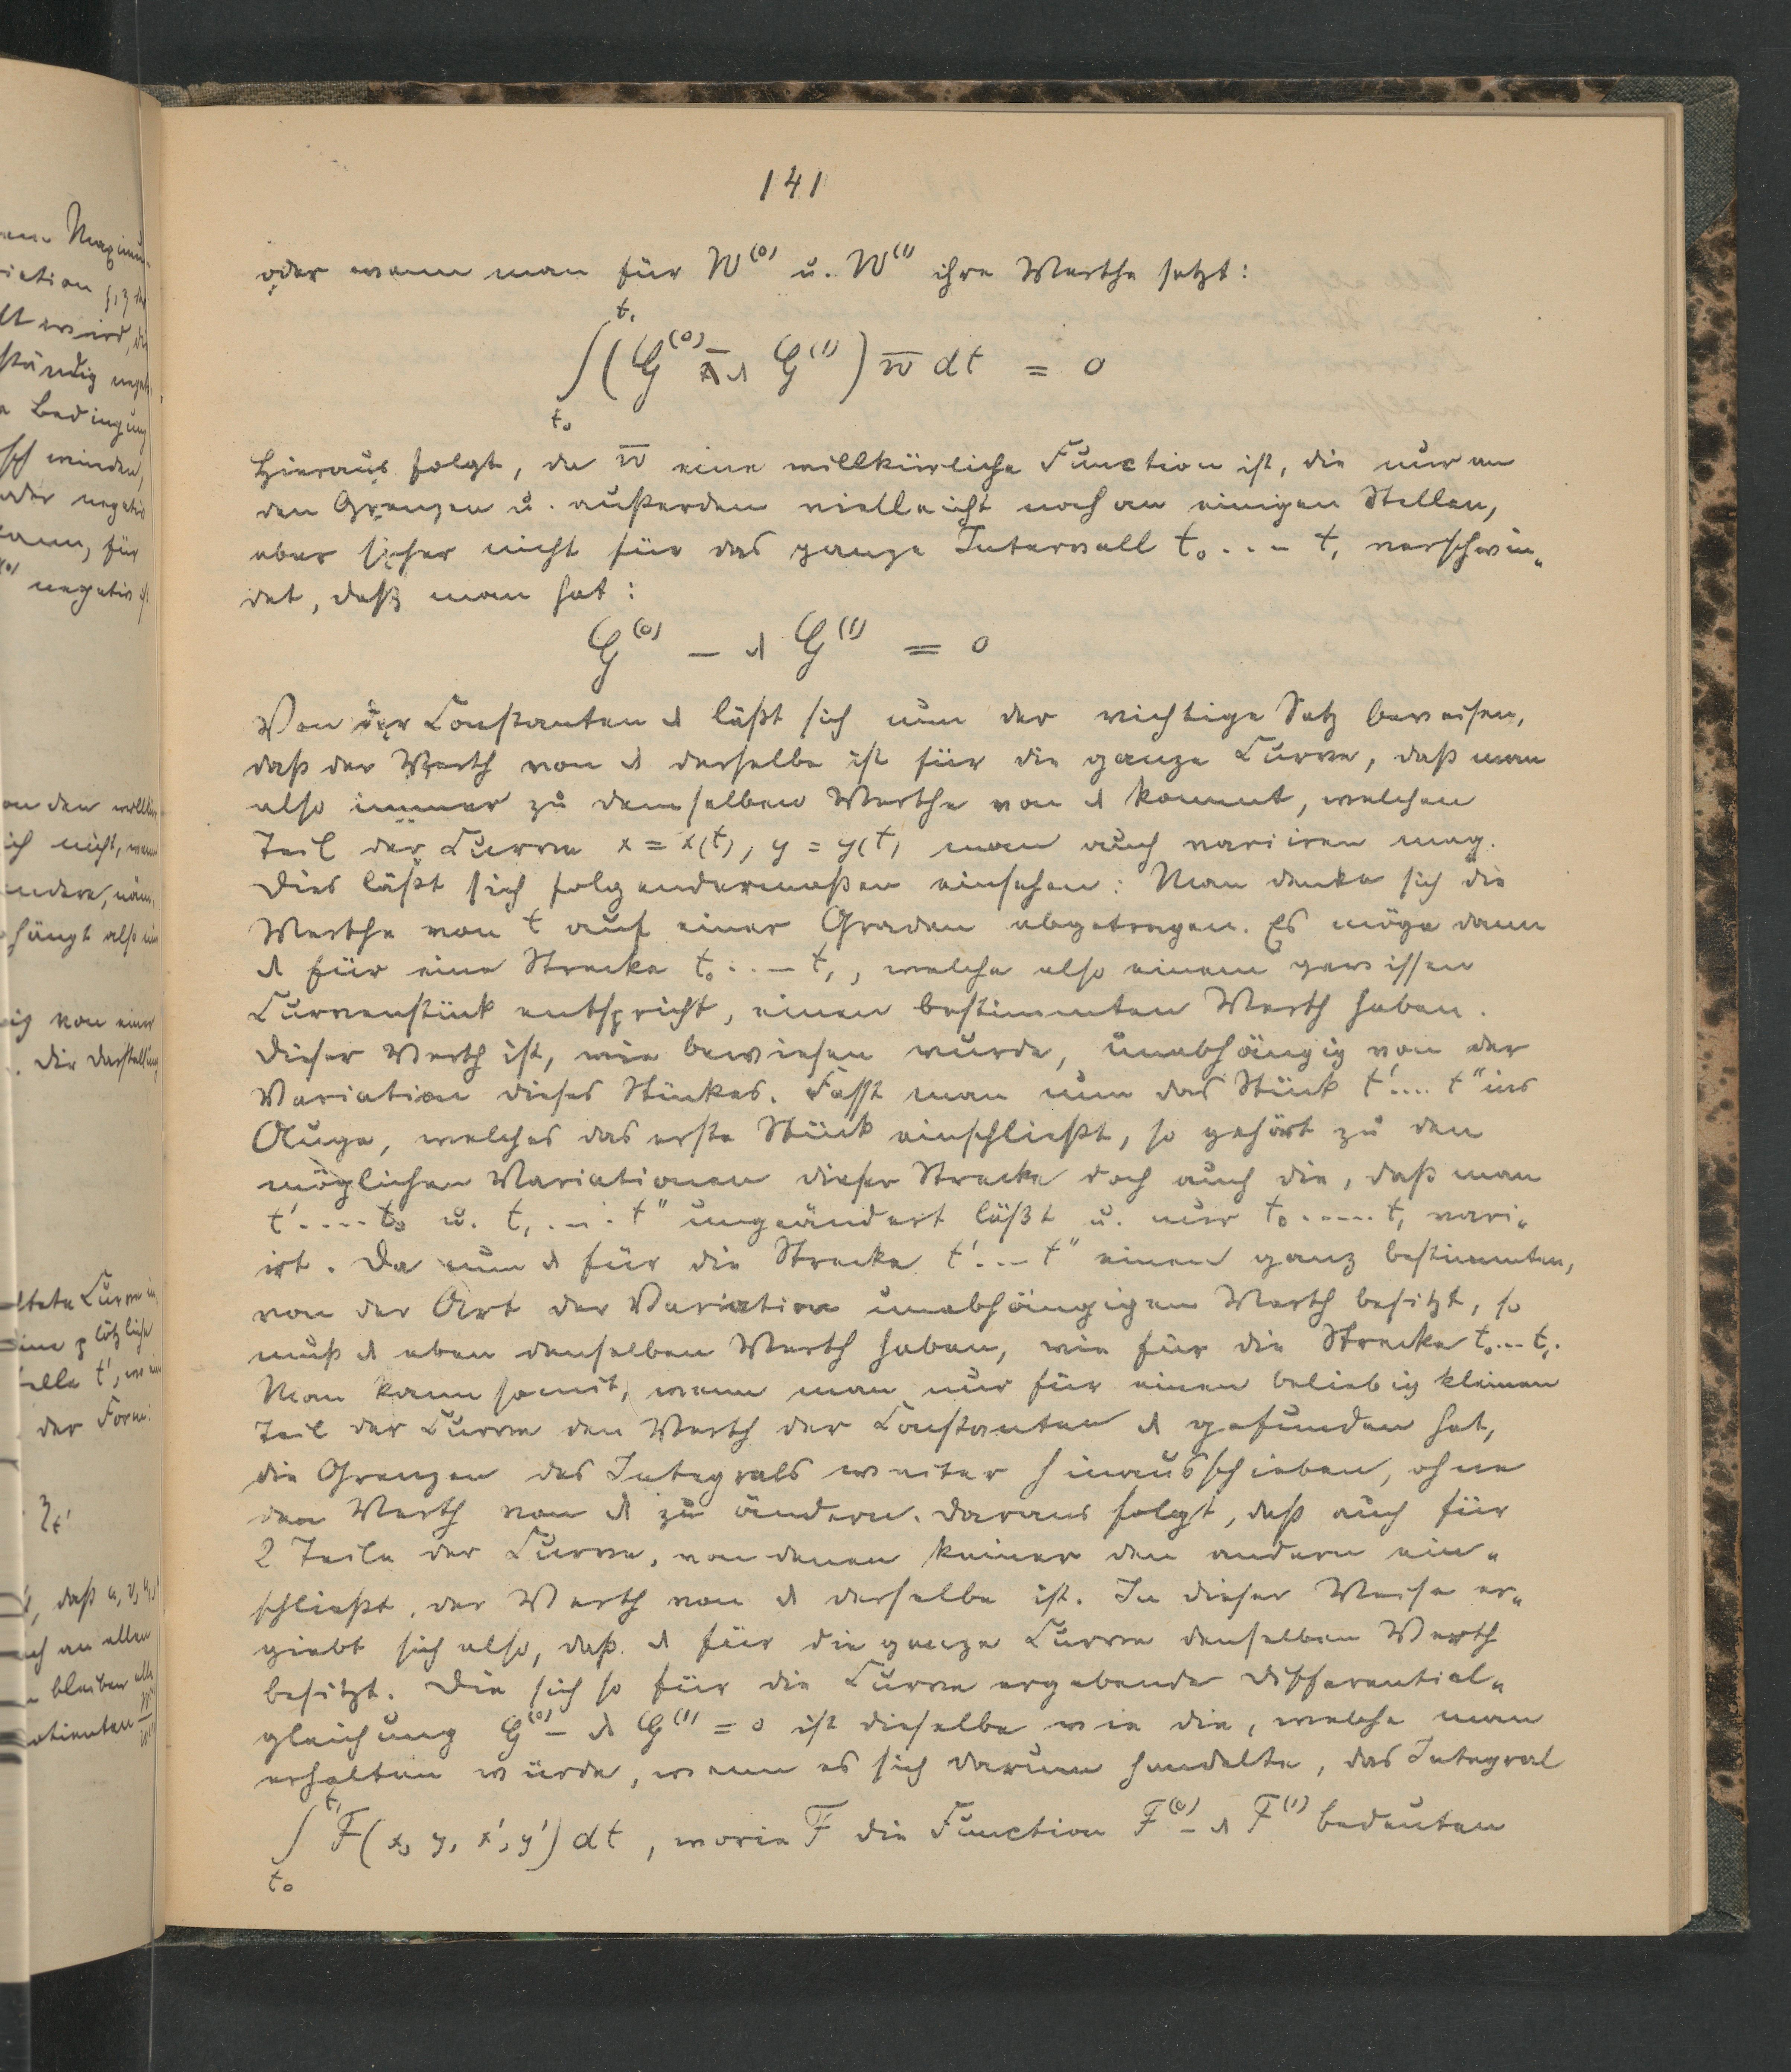 141
oder wenn man für W⁽⁰⁾ u. W⁽¹⁾ ihre Werthe setzt:
∫_{t₀}^{t₁} (G⁽⁰⁾ − λ G⁽¹⁾) w̅ dt = 0
Hieraus folgt, da w̅ eine willkürliche Function ist, die nur an
den Grenzen u. außerdem vielleicht noch an einigen Stellen,
aber sicher nicht für das ganze Intervall t₀...- t₁ verschwin-
det, daß man hat:
G⁽⁰⁾ − λ G⁽¹⁾ = 0
Von der Constanten λ läßt sich nun der wichtige Satz beweisen,
daß der Werth von λ derselbe ist für die ganze Curve, daß man
also immer zu demselben Werthe von λ kommt, welchen
Teil der Curve x = x(t), y = y(t) man auch variiren mag.
Dies läßt sich folgendermaßen einsehen: Man denke sich die
Werthe von t auf einer Graden abgetragen. Es möge dann
λ für eine Strecke t₀....t₁, welche also einem gewissen
Curvenstück entspricht, einen bestimmten Werth haben.
Dieser Werth ist, wie bewiesen wurde, unabhängig von der
Variation dieses Stückes. Fasst man nun das Stück t'....t" ins
Auge, welches das erste Stück einschließt, so gehört zu den
möglichen Variationen dieser Strecke doch auch die, daß man
t'....t₀ u. t₁....t" ungeändert läßt u. nur t₀.....t₁ vari-
irt. Da nun λ für die Strecke t'...t" einen ganz bestimmten,
von der Art der Variation unabhängigen Werth besitzt, so
muß λ eben denselben Werth haben, wie für die Strecke t₀...t₁.
Man kann somit, wenn man nur für einen beliebig kleinen
Teil der Curve den Werth der Constanten λ gefunden hat,
die Grenzen des Integrals weiter hinausschieben, ohne
den Werth von λ zu ändern. Daraus folgt, daß auch für
2 Teile der Curve, von denen keiner den andern ein-
schließt, der Werth von λ derselbe ist. In dieser Weise er-
giebt sich also, daß λ für die ganze Curve denselben Werth
besitzt. Die sich so für die Curve ergebende Differential-
gleichung G⁽⁰⁾ − λ G⁽¹⁾ = 0 ist dieselbe wie die, welche man
erhalten würde, wenn es sich darum handelte, das Integral
∫_{t₀}^{t₁} F(x, y, x', y') dt, worin F die Function F⁽⁰⁾ − λ F⁽¹⁾ bedeuten